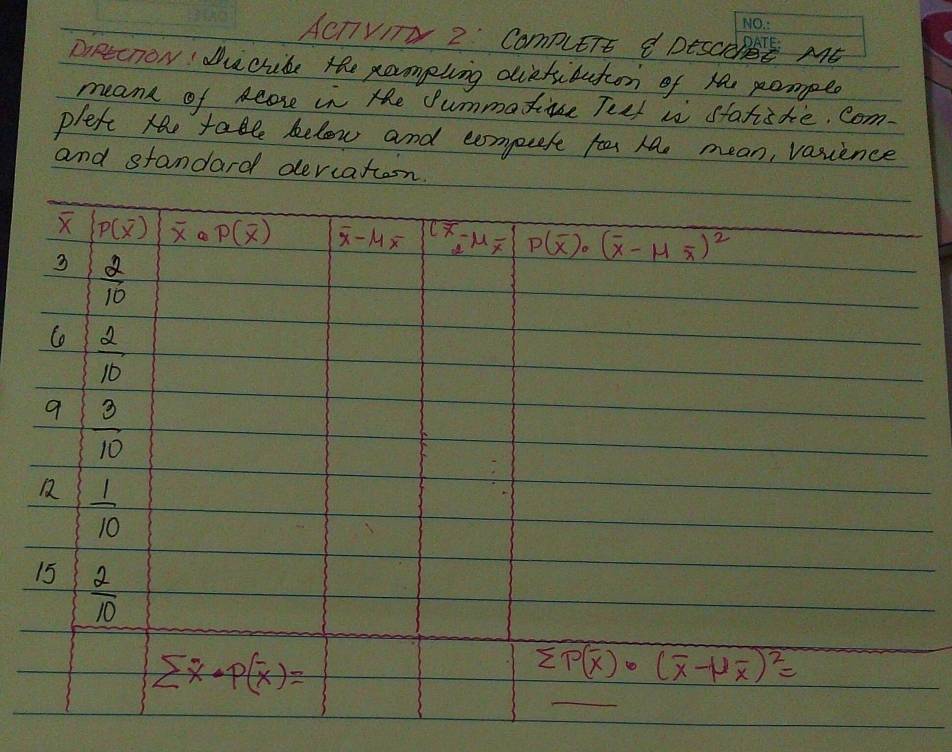 NO.:
DATE:
ACTIVITY 2: COMPLETE & DESCRIBE ME
DIRECTION: Discribe the sampling distribution of the sample
means of score in the Summative Test in Statistic. Com-
plete the table below and compute for the mean, varience
and standard deviation.
x̄ P(x̄) x̄ • P(x̄) x̄ - μ x̄ (x̄ - μ x̄ 2 P(x̄) • (x̄ - μ x̄)²
3 2/10
6 2/10
9 3/10
12 1/10
15 2/10
Σx̄ • P(x̄) = ΣP(x̄) • (x̄ - μ x̄)² =